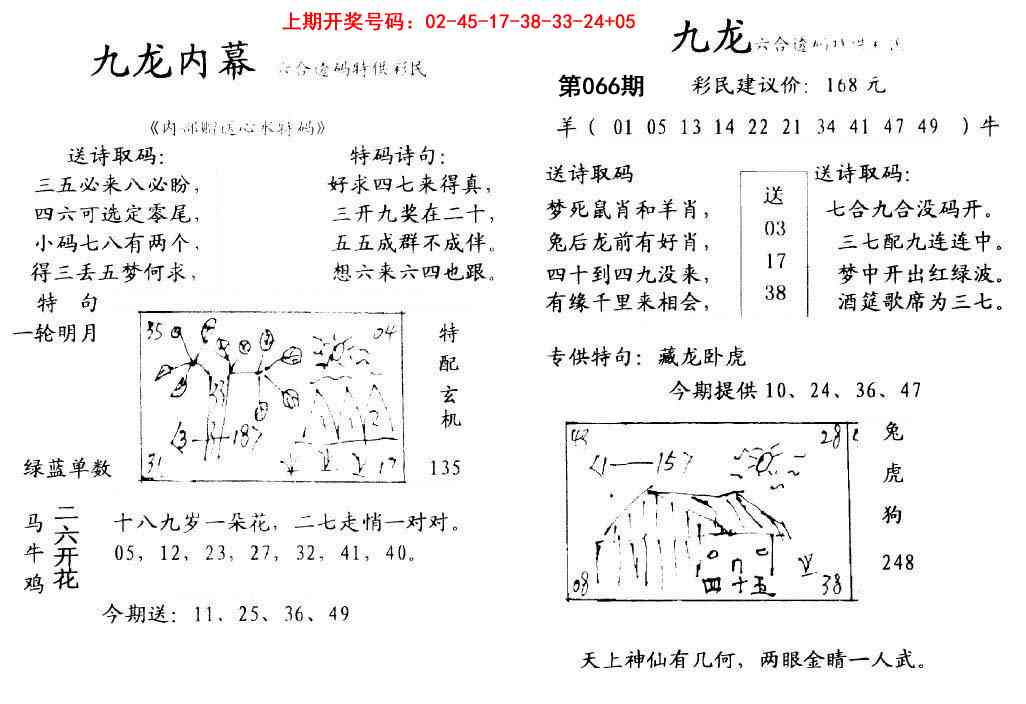 上期开奖号码：02-45-17-38-33-24+05
九龙内幕
六合透码特供彩民
《内部赠送心水特码》
送诗取码：
三五必来八必盼，
四六可选定零尾，
小码七八有两个，
得三丢五梦何求，
特码诗句：
好求四七来得真，
三开九奖在二十，
五五成群不成伴。
想六来六四也跟。
特 句
一轮明月
绿蓝单数
35
04
31
17
13——187
特配玄机
135
马牛鸡
二六开花
十八九岁一朵花，二七走悄一对对。
05，12，23，27，32，41，40。
今期送：11、25、36、49
九龙
六合透码
第066期
彩民建议价：168元
羊（ 01 05 13 14 22 21 34 41 47 49 ）牛
送诗取码
梦死鼠肖和羊肖，
兔后龙前有好肖，
四十到四九没来，
有缘千里来相会，
送
03
17
38
送诗取码：
七合九合没码开。
三七配九连连中。
梦中开出红绿波。
酒筵歌席为三七。
专供特句：藏龙卧虎
今期提供10、24、36、47
28
——157
08
四十五
38
兔
虎
狗
248
天上神仙有几何，两眼金睛一人武。